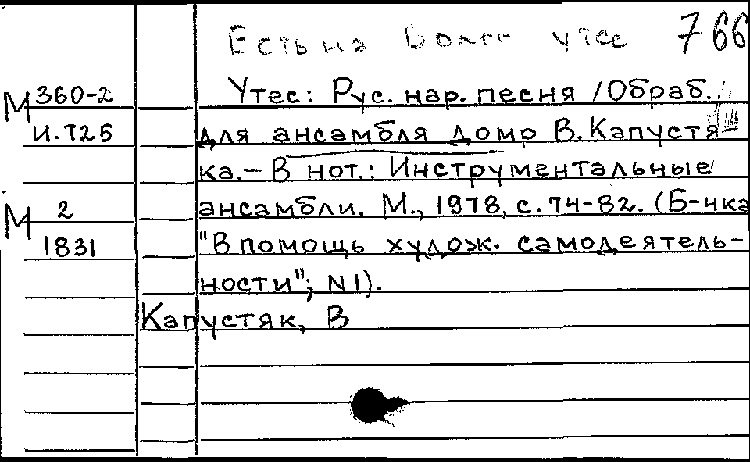 Есть на Волге утес 766
М 360-2
И.Т25
М 2
1831
Утес: Рус. нар. песня / Обраб.
для ансамбля домр В. Капустя
ка.– В нот.: Инструментальные
ансамбли. М., 1978, с. 74-82. (Б-чка
"В помощь худож. самодеятель-
ности"; N1).
Капустяк, В